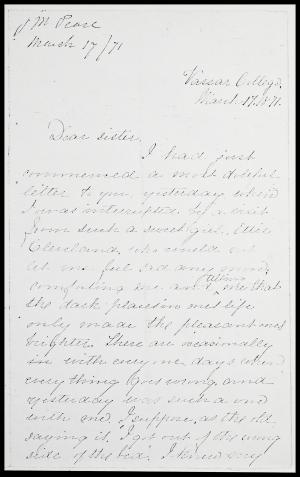 J M Pease
March 17/71
Vassar College.
March 17, 1871.
Dear sister,
I had just
commenced a most doleful
letter to you, yesterday when
I was interrupted by a visit
from such a sweet girl, Ettie
Cleveland, who would not
let me feel bad any more,
comforting me and telling me that
the dark places in one's life
only made the pleasant ones
brighter. There are occasionally
in with every one, days when
everything goes wrong, and
yesterday was such a one
with me. I suppose, as the old
saying is, "I got out of the wrong
side of the bed." I knew my